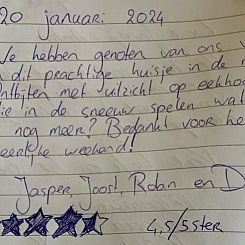 20 januari 2024
We hebben genoten van ons
dit prachtige huisje in de
ontbijten met uitzicht op eekhoo
die in de sneeuw spelen wat
nog meer? Bedankt voor he
eerlijke weekend!
Jasper, Joost, Robin en D
4,5/5 ster